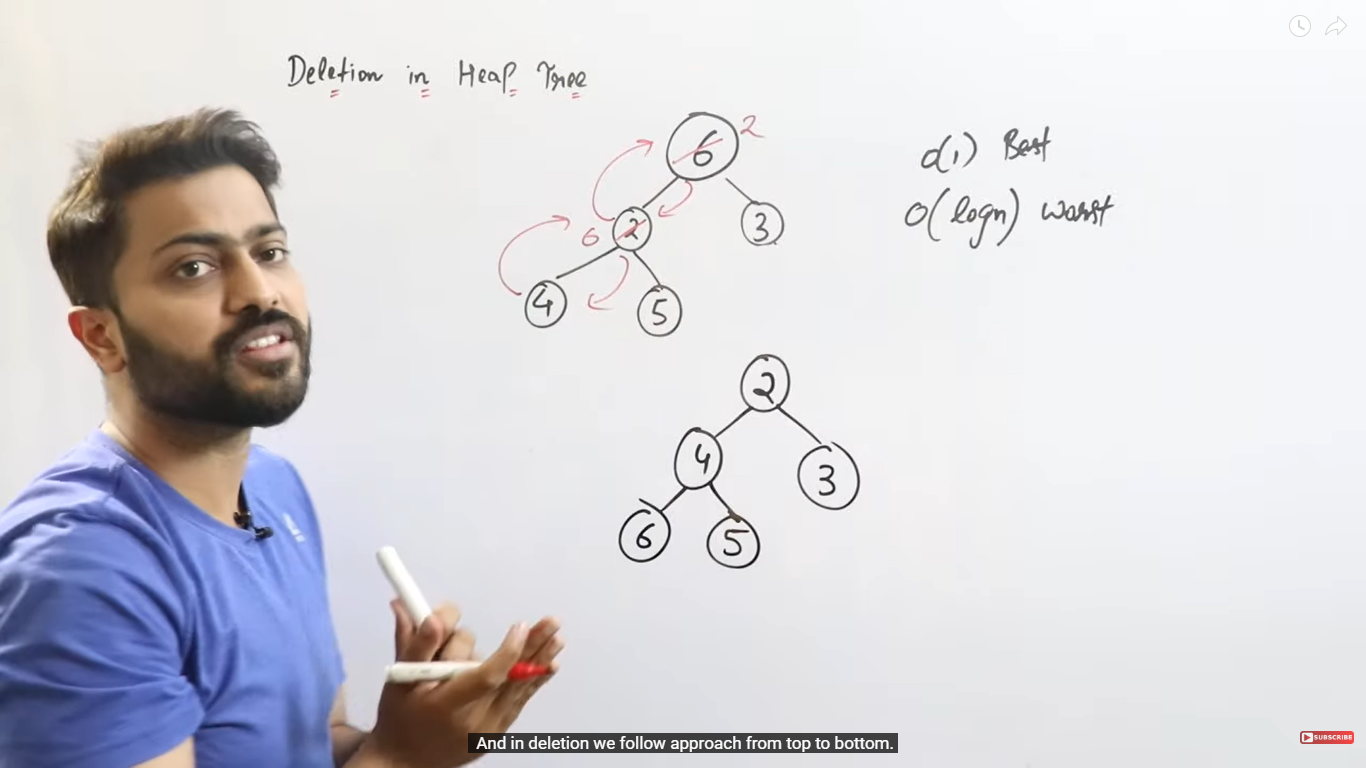 Deletion in Heap Tree
6 2
6 2 3
4 5
O(1) Best
O(logn) worst
2
4 3
6 5
And in deletion we follow approach from top to bottom.
SUBSCRIBE